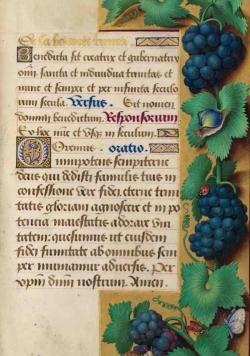 Benedicta sit creatrix et gubernatrix
omni sancta et individua trinitas et
nunc et semper et per infinita seculo
rum secula. Versus. Sit nomen
domini benedictum. Responsorium
Ex hoc nunc et vsq in seculum.
Oremus. oratio.
Omnipotens sempiterne
deus qui dedisti famulis tuis in
confessione vere fidei eterne trini
tatis gloriam agnoscere et in po
tencia maiestatis adorare vni
tatem: quesumus ut eiusdem
fidei firmitate ab omnibus sem
per muniamur aduersis. Per
xpm dnm nostrum. Amen.